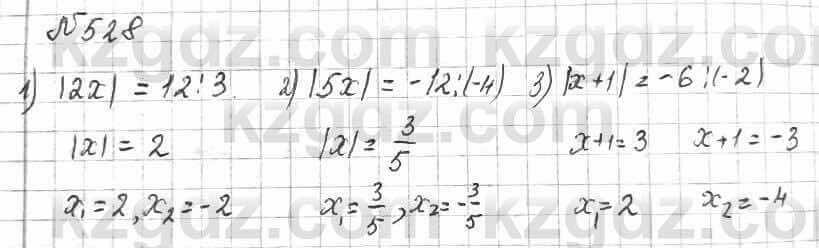 №528
1) |2x| = 12:3 2) |5x| = -12:(-4) 3) |x+1| = -6:(-2)
|x| = 2 |x| = 3/5 x+1=3 x+1=-3
x₁=2, x₂=-2 x₁=3/5, x₂=-3/5 x₁=2 x₂=-4
kzgdz.com kzgdz.com
kzgdz.com
kzgdz.com kzgdz.com